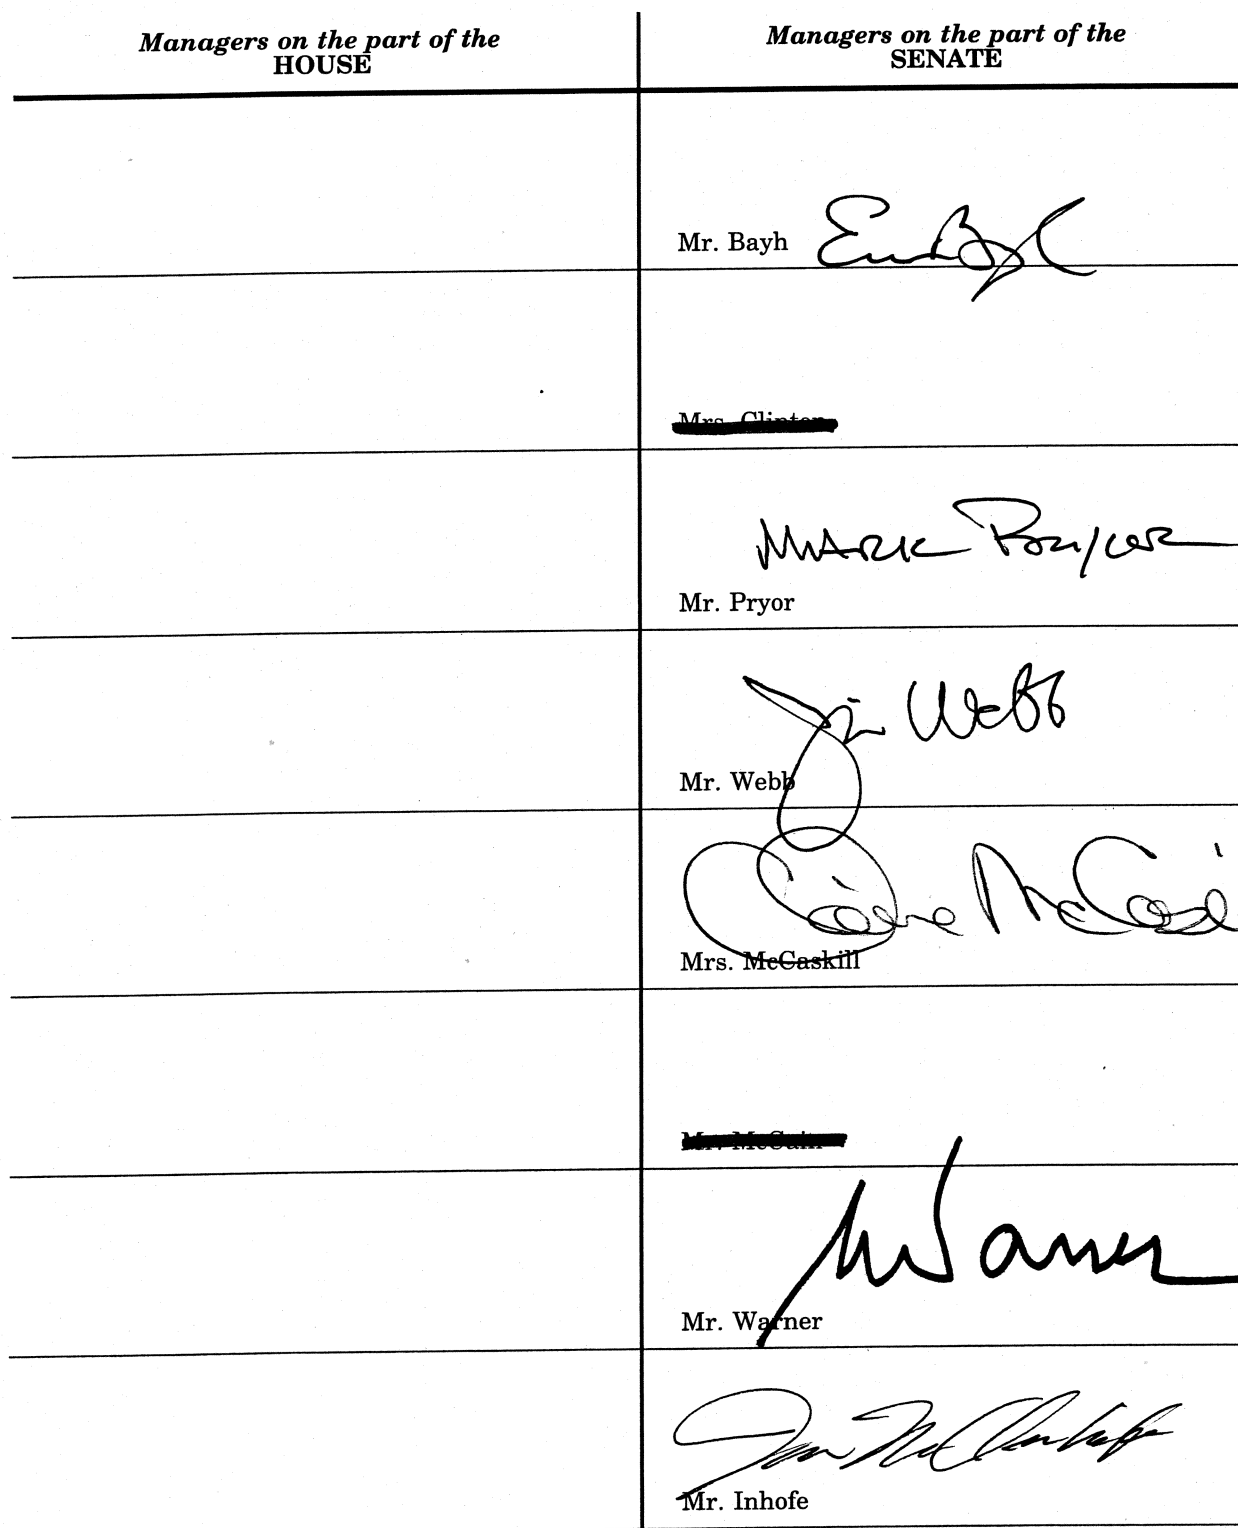 Managers on the part of the
HOUSE
Managers on the part of the
SENATE
Mr. Bayh Evan Bayh
Mrs. Clinton
Mark Pryor
Mr. Pryor
Jim Webb
Mr. Webb
Claire McCaski
Mrs. McCaskill
Mr. McCain
Warner
Mr. Warner
Mr. Inhofe